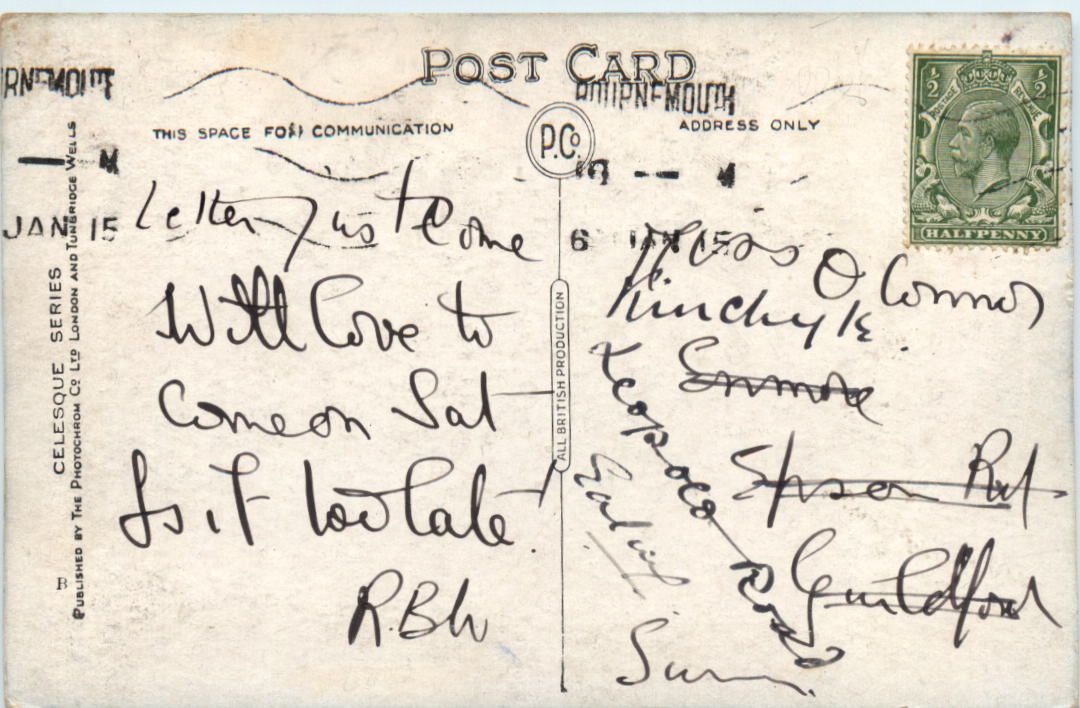 POST CARD
THIS SPACE FOR COMMUNICATION
ADDRESS ONLY
P.Co
RNEMOUTH
M
JAN 15
BOURNEMOUTH
6 JAN 15
½ ½
POSTAGE REVENUE
HALFPENNY
Letter just Come
Will Love to
Come on Sat
Is it too late
R.B.W
Miss O Connor
Enmore
Epsom Rd
Guildford
Leopold Road
CELESQUE SERIES
PUBLISHED BY THE PHOTOCHROM Co LTD LONDON AND TUNBRIDGE WELLS
B
ALL BRITISH PRODUCTION